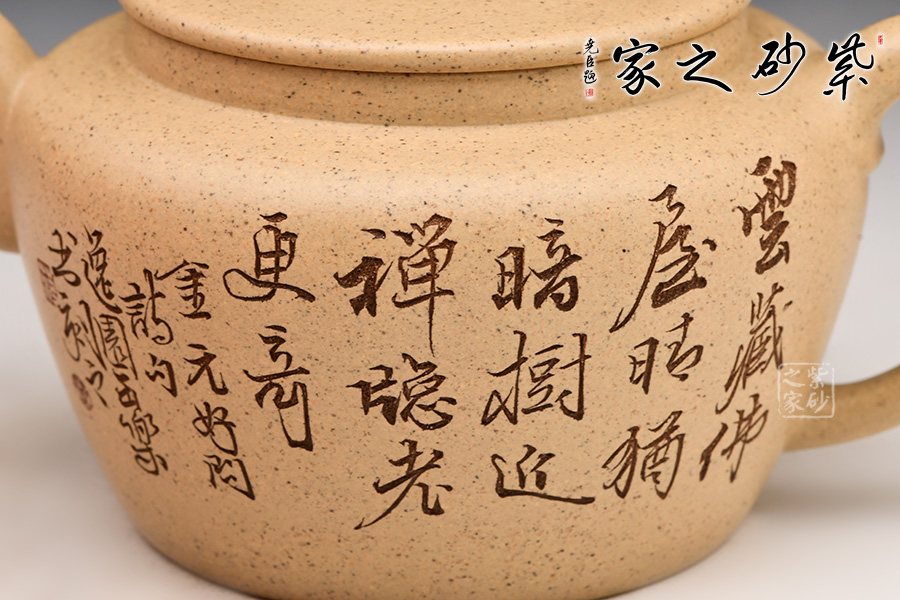 紫砂之家
尧臣题
雲藏佛
屋晴猶
暗樹近
禪隐老
更奇
金元好問
詩句
逸園
书
紫砂之家